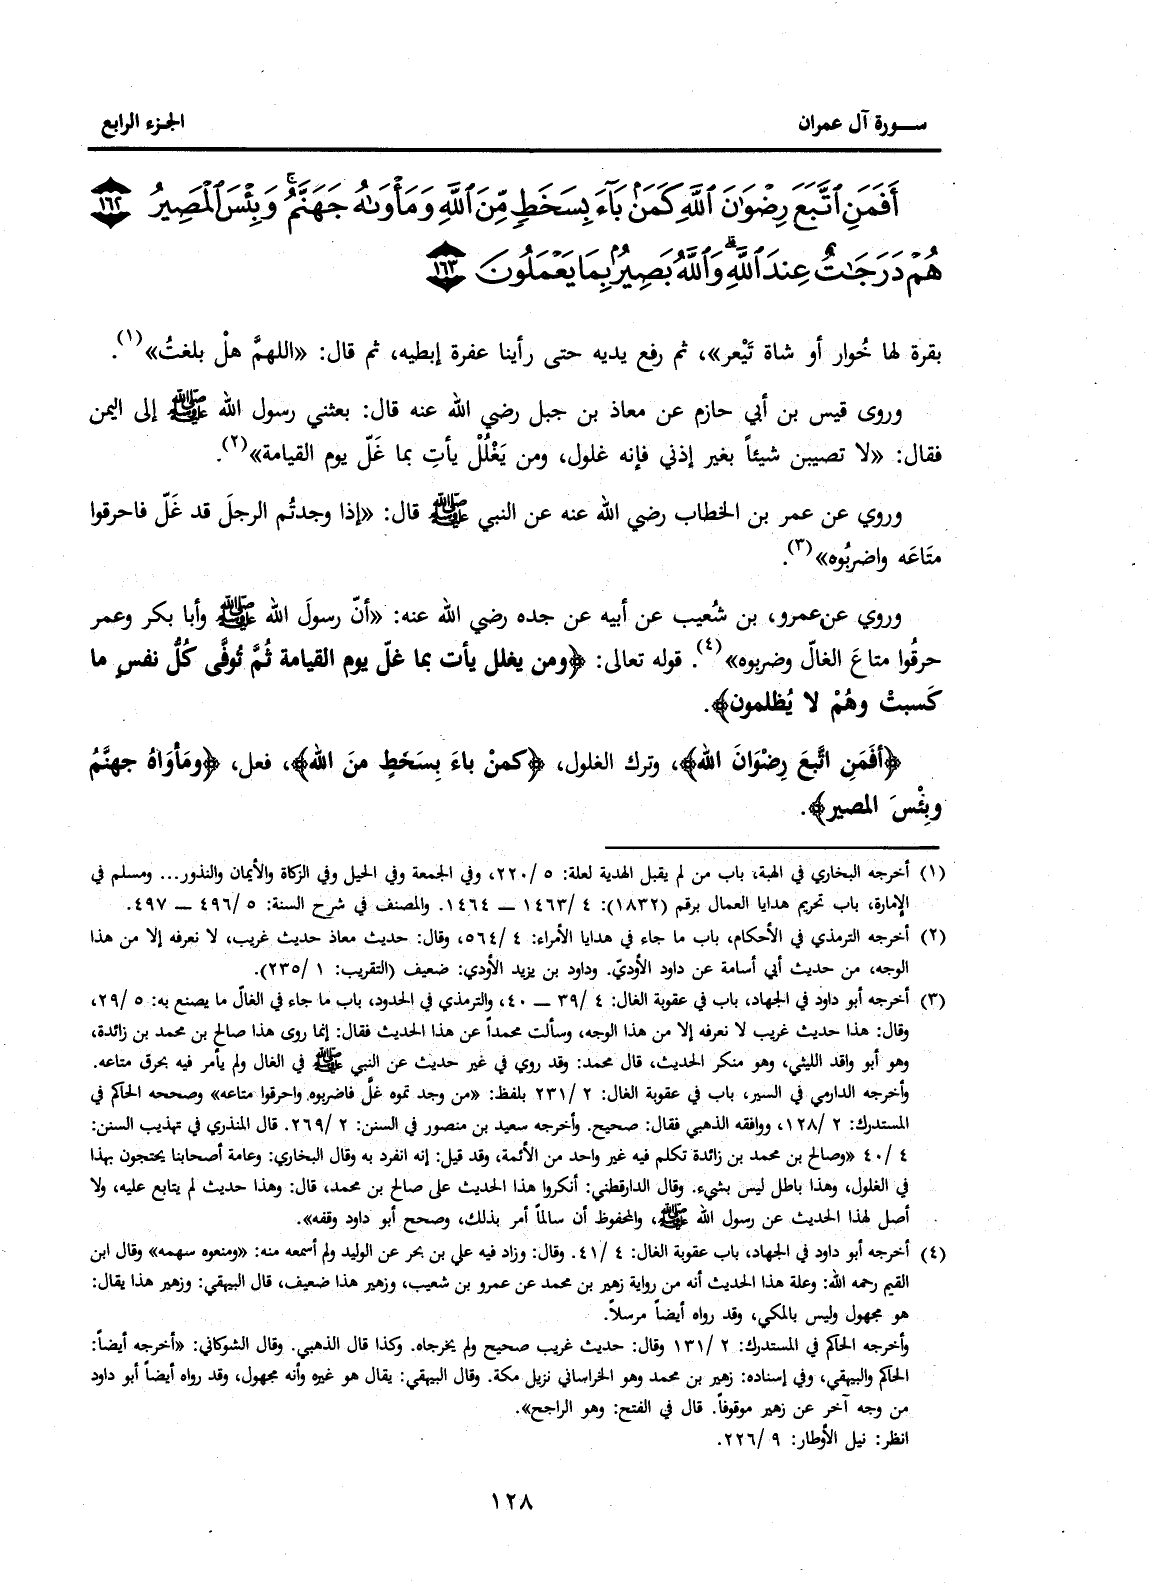 سورة آل عمران
الجزء الرابع
أَفَمَنِ ٱتَّبَعَ رِضْوَٰنَ ٱللَّهِ كَمَنۢ بَآءَ بِسَخَطٍ مِّنَ ٱللَّهِ وَمَأْوَىٰهُ جَهَنَّمُ ۚ وَبِئْسَ ٱلْمَصِيرُ ١٦٢
هُمْ دَرَجَٰتٌ عِندَ ٱللَّهِ ۗ وَٱللَّهُ بَصِيرٌۢ بِمَا يَعْمَلُونَ ١٦٣
بقرة لها خُوار أو شاة تَيْعر»، ثم رفع يديه حتى رأينا عفرة إبطيه، ثم قال: «اللهمَّ هلْ بلغتُ»(١).
وروى قيس بن أبي حازم عن معاذ بن جبل رضي الله عنه قال: بعثني رسول الله ﷺ إلى اليمن
فقال: «لا تصيبن شيئاً بغير إذني فإنه غلول، ومن يَغْلُلْ يأتِ بما غَلّ يوم القيامة»(٢).
وروي عن عمر بن الخطاب رضي الله عنه عن النبي ﷺ قال: «إذا وجدتُم الرجلَ قد غَلّ فاحرقوا
متَاعَه واضربُوه»(٣).
وروي عن عمرو، بن شُعيب عن أبيه عن جده رضي الله عنه: «أنّ رسولَ الله ﷺ وأبا بكر وعمر
حرقُوا متاعَ الغالّ وضربوه»(٤). قوله تعالى: ﴿ومن يغلل يأت بما غلّ يوم القيامة ثُمَّ تُوفَّى كُلُّ نفسٍ ما
كَسبتْ وهُمْ لا يُظلمون﴾.
﴿أفَمَنِ اتَّبعَ رِضْوَانَ الله﴾، وترك الغلول، ﴿كمنْ باءَ بِسَخَطٍ منَ الله﴾، فعل، ﴿ومَأوَاهُ جهنَّمُ
وبِئْسَ المصير﴾.
(١) أخرجه البخاري في الهبة، باب من لم يقبل الهدية لعلة: ٥ /٢٢٠، وفي الجمعة وفي الحيل وفي الزكاة والأيمان والنذور... ومسلم في
الإمارة، باب تحريم هدايا العمال برقم (١٨٣٢): ٤ /١٤٦٣ ــ ١٤٦٤. والمصنف في شرح السنة: ٥ /٤٩٦ ــ ٤٩٧.
(٢) أخرجه الترمذي في الأحكام، باب ما جاء في هدايا الأمراء: ٤ /٥٦٤، وقال: حديث معاذ حديث غريب، لا نعرفه إلا من هذا
الوجه، من حديث أبي أسامة عن داود الأوديّ. وداود بن يزيد الأودي: ضعيف (التقريب: ١ /٢٣٥).
(٣) أخرجه أبو داود في الجهاد، باب في عقوبة الغال: ٤ /٣٩ ــ ٤٠، والترمذي في الحدود، باب ما جاء في الغالّ ما يصنع به: ٥ /٢٩،
وقال: هذا حديث غريب لا نعرفه إلا من هذا الوجه، وسألت محمداً عن هذا الحديث فقال: إنما روى هذا صالح بن محمد بن زائدة،
وهو أبو واقد الليثي، وهو منكر الحديث، قال محمد: وقد روي في غير حديث عن النبي ﷺ في الغال ولم يأمر فيه بحرق متاعه.
وأخرجه الدارمي في السير، باب في عقوبة الغال: ٢ /٢٣١ بلفظ: «من وجد تموه غلَّ فاضربوه واحرقوا متاعه» وصححه الحاكم في
المستدرك: ٢ /١٢٨، ووافقه الذهبي فقال: صحيح. وأخرجه سعيد بن منصور في السنن: ٢ /٢٦٩. قال المنذري في تهذيب السنن:
٤ /٤٠ «وصالح بن محمد بن زائدة تكلم فيه غير واحد من الأئمة، وقد قيل: إنه انفرد به وقال البخاري: وعامة أصحابنا يحتجون بهذا
في الغلول، وهذا باطل ليس بشيء. وقال الدارقطني: أنكروا هذا الحديث على صالح بن محمد، قال: وهذا حديث لم يتابع عليه، ولا
أصل لهذا الحديث عن رسول الله ﷺ، والمحفوظ أن سالماً أمر بذلك، وصحح أبو داود وقفه».
(٤) أخرجه أبو داود في الجهاد، باب عقوبة الغال: ٤ /٤١. وقال: وزاد فيه علي بن بحر عن الوليد ولم أسمعه منه: «ومنعوه سهمه» وقال ابن
القيم رحمه الله: وعلة هذا الحديث أنه من رواية زهير بن محمد عن عمرو بن شعيب، وزهير هذا ضعيف، قال البيهقي: وزهير هذا يقال:
هو مجهول وليس بالمكي، وقد رواه أيضاً مرسلاً.
وأخرجه الحاكم في المستدرك: ٢ /١٣١ وقال: حديث غريب صحيح ولم يخرجاه. وكذا قال الذهبي. وقال الشوكاني: «أخرجه أيضاً:
الحاكم والبيهقي، وفي إسناده: زهير بن محمد وهو الخراساني نزيل مكة. وقال البيهقي: يقال هو غيره وأنه مجهول، وقد رواه أيضاً أبو داود
من وجه آخر عن زهير موقوفاً. قال في الفتح: وهو الراجح».
انظر: نيل الأوطار: ٩ /٢٢٦.
١٢٨